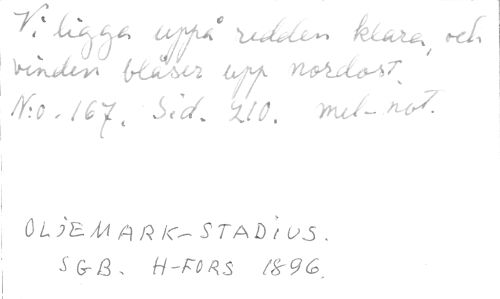 Vi ligga uppå redden klara, och
vinden blåser upp nordost.
N:o. 167. Sid. 210. mel-not.
OLJEMARK-STADIUS.
SGB. H-FORS 1896.